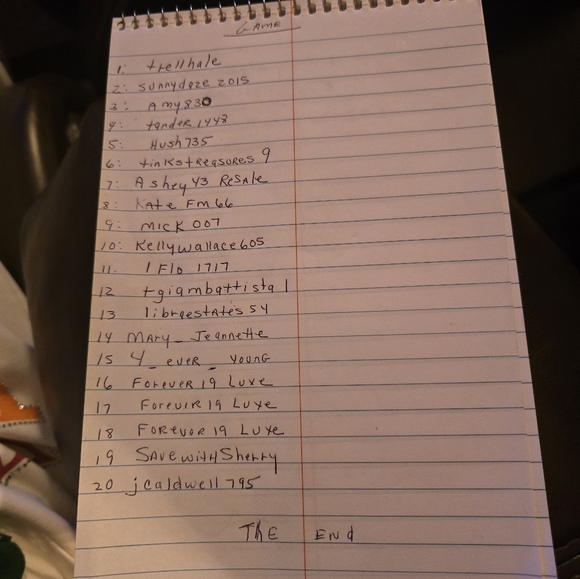 GAME
1: trellhale
2: sunnydaze 2015
3: Amy830
4: tander1448
5: Hush735
6: tinkstreasures9
7: Ashey43 Resale
8: Kate Fm66
9: mick 007
10: Kellywallace605
11. 1Flo 1717
12 tgiambattista1
13 libraestates54
14 Mary_Jeannette
15 4_ever_young
16 Forever 19 Luxe
17 Forevir 19 Luxe
18 Forevor 19 Luxe
19 SavewithSherry
20 jcaldwell795
The End